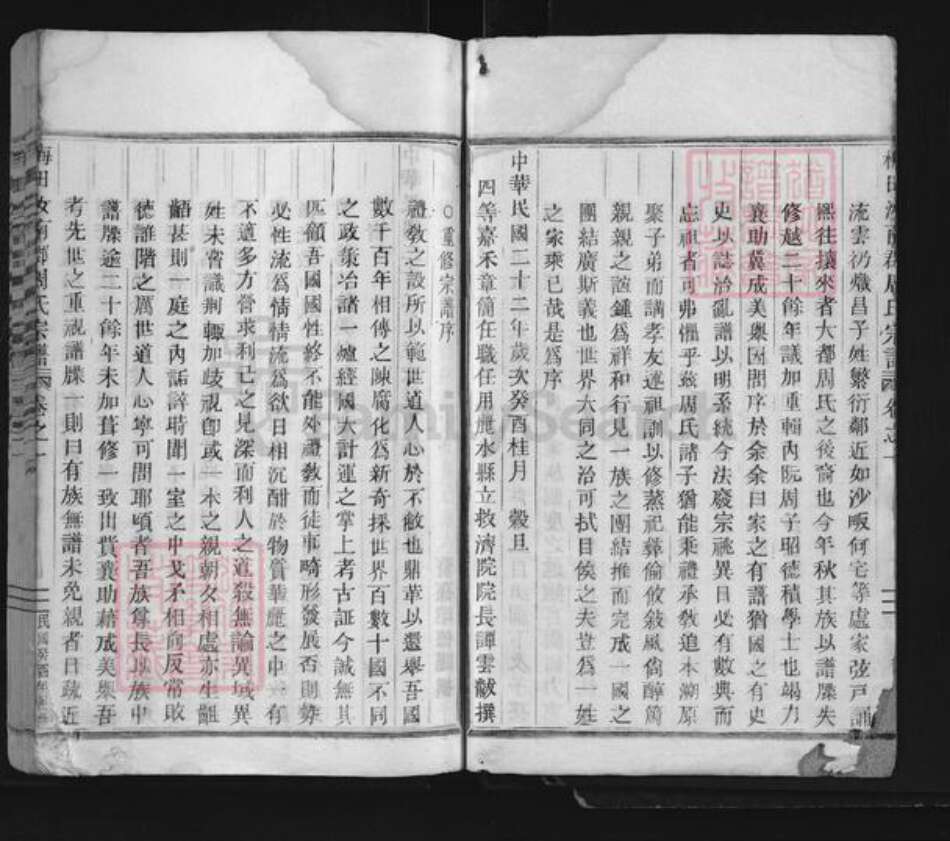 流雲礽熾昌子姓繁衍鄰近如沙畈何宅等處家弦戸誦
熙往攘來者大都周氏之後裔也今年秋其族以譜牒失
修越二十餘年議加重輯內阮周子昭德積學士也竭力
襄助冀成美舉因問序於余余曰家之有譜猶國之有史
史以誌治亂譜以明系統今法廢宗祧異日必有數典而
忘祖者可弗懼乎茲周氏諸子猶能秉禮承教追本溯原
聚子弟而講孝友述祖訓以修蒸祀彝倫攸敍風尙醇篤
親親之誼鍾爲祥和行見一族之團結推而完成一國之
團結廣斯義也世界大同之治可拭目俟之夫豈爲一姓
之家乘已哉是爲序
中華民國二十二年歲次癸酉桂月 穀旦
四等嘉禾章簡任職任用麗水縣立救濟院院長譚雲黻撰
梅田汝南郡周氏宗譜 卷之一
○重修宗譜序
禮敎之設所以範世道人心於不敝也鼎革以還舉吾國
數千百年相傳之陳腐化爲新奇採世界百數十國不同
之政策冶諸一爐經國大計運之掌上考古証今誠無其
匹顧吾國國性終不能外禮敎而徒事畸形發展否則勢
必性流爲情情流爲欲日相沉酣於物質華麗之中 有
不適多方營求利己之見深而利人之道殺無論異域異
姓未嘗識荆輙加歧視卽或一本之親朝夕相處亦生齟
齬甚則一庭之內詬誶時聞一室之中戈矛相向反常敗
德誰階之厲世道人心寧可問耶頃者吾族尊長以族中
譜牒逾二十餘年未加葺修一致出貲襄助藉成美舉吾
考先世之重視譜牒一則曰有族無譜未免親者日疏近
梅田汝南郡周氏宗譜 卷之一
民國癸酉年